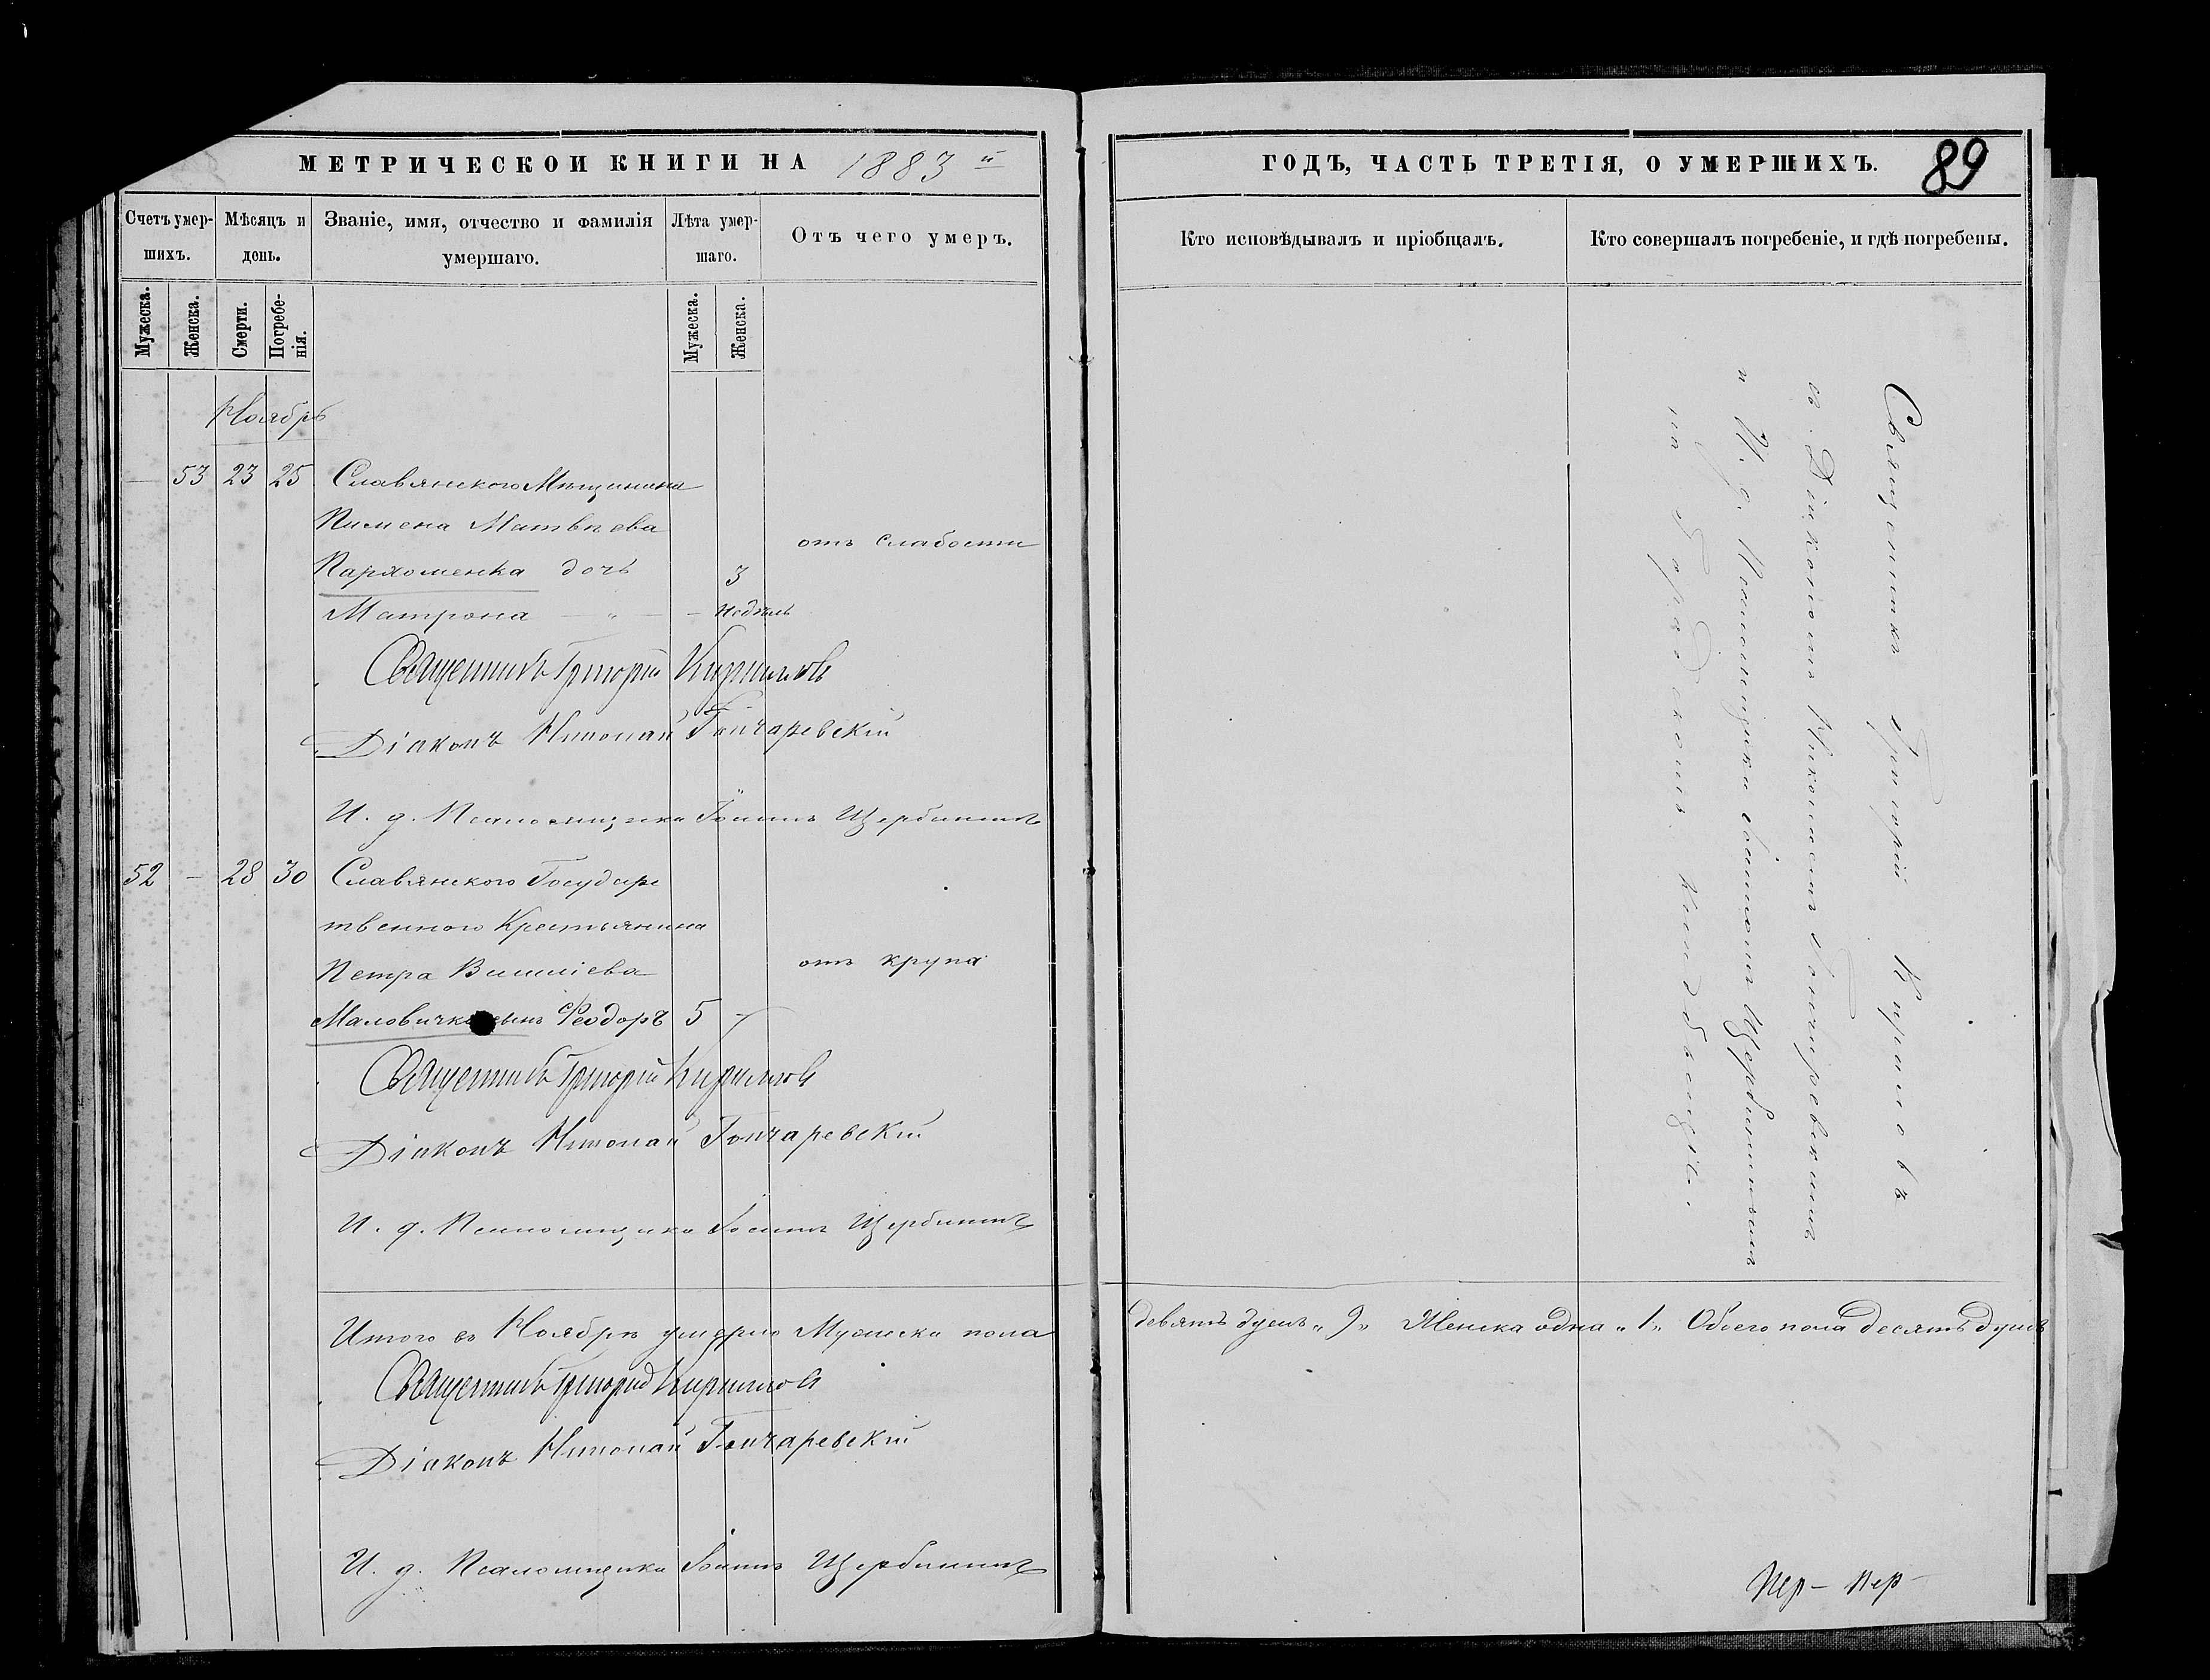 МЕТРИЧЕСКОЙ КНИГИ НА 1883 й
Счетъ умер-
шихъ.
Мѣсяцъ и
день.
Званіе, имя, отчество и фамилія
умершаго.
Лѣта умер-
шаго.
Отъ чего умеръ.
Мужеска.
Женска.
Смерти.
Погребе-
нія.
Мужеска.
Женска.
Ноябрь
— 53 23 25 Славянского Мѣщанина
Пимена Матвѣева
отъ слабости
Пархоменка дочь 3
Матрона — „ — — недѣль
Священникъ Григорій Кириловъ
Діаконъ Николай Гончаревскій
И. д. Псаломщика Іоаннъ Щербининъ
52 — 28 30 Славянского Государс
твенного Крестьянина
Петра
отъ крупа
Маловичка сынъ Ѳеодоръ 5 —
Священникъ Григорій Кириловъ
Діаконъ Николай Гончаревскій
И. д. Псаломщика Іоаннъ Щербининъ
Итого въ Ноябрѣ умерло Мужеска пола
Священникъ Григорій Кириловъ
Діаконъ Николай Гончаревскій
И. д. Псаломщика Іоаннъ Щербининъ
ГОДЪ, ЧАСТЬ ТРЕТІЯ, О УМЕРШИХЪ. 89
Кто исповѣдывалъ и пріобщалъ.
Кто совершалъ погребеніе, и гдѣ погребены.
Священникъ Григорій Кириловъ
съ Діакономъ Николаемъ Гончаревскимъ
и И. д. Псаломщика Іоанномъ Щербининымъ
на Градскомъ кладбищѣ.
девять душъ „ 9 „ Женска одна „ 1 „ Обоего пола десять душъ